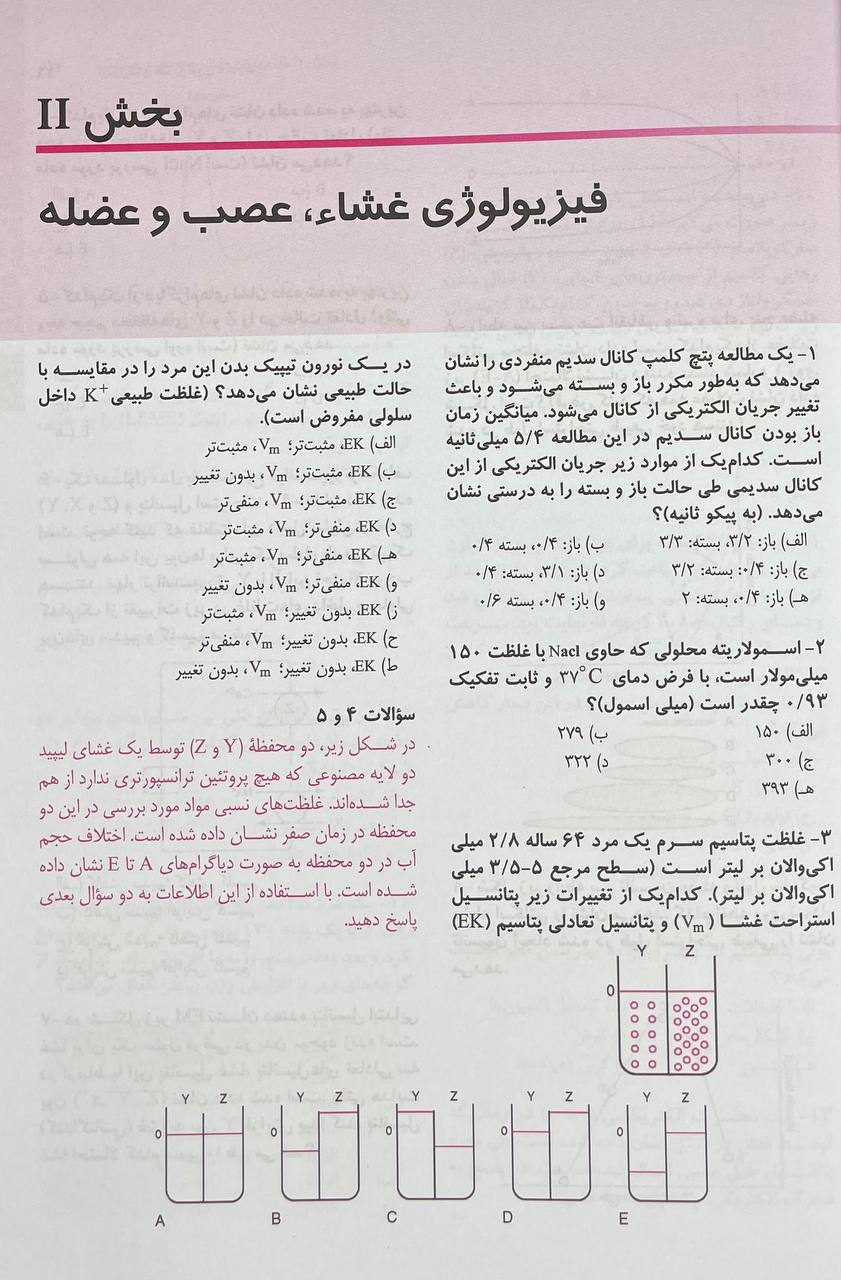 بخش II
فیزیولوژی غشاء، عصب و عضله
۱- یک مطالعه پتچ کلمپ کانال سدیم منفردی را نشان
می‌دهد که به‌طور مکرر باز و بسته می‌شود و باعث
تغییر جریان الکتریکی از کانال می‌شود. میانگین زمان
باز بودن کانال سدیم در این مطالعه ۵/۴ میلی‌ثانیه
است. کدام‌یک از موارد زیر جریان الکتریکی از این
کانال سدیمی طی حالت باز و بسته را به درستی نشان
می‌دهد. (به پیکو ثانیه)؟
الف) باز: ۳/۲، بسته: ۳/۳ ب) باز: ۰/۴، بسته ۰/۴
ج) باز: ۰/۴: بسته: ۳/۲ د) باز: ۳/۱، بسته: ۰/۴
هـ) باز: ۰/۴، بسته: ۲ و) باز: ۰/۴، بسته ۰/۶
۲- اسمولاریته محلولی که حاوی Nacl با غلظت ۱۵۰
میلی‌مولار است، با فرض دمای ۳۷°C و ثابت تفکیک
۰/۹۳ چقدر است (میلی اسمول)؟
الف) ۱۵۰ ب) ۲۷۹
ج) ۳۰۰ د) ۳۲۲
هـ) ۳۹۳
۳- غلظت پتاسیم سرم یک مرد ۶۴ ساله ۲/۸ میلی
اکی‌والان بر لیتر است (سطح مرجع ۵-۳/۵ میلی
اکی‌والان بر لیتر). کدام‌یک از تغییرات زیر پتانسیل
استراحت غشا (Vm) و پتانسیل تعادلی پتاسیم (EK)
در یک نورون تیپیک بدن این مرد را در مقایسه با
حالت طبیعی نشان می‌دهد؟ (غلظت طبیعی K+ داخل
سلولی مفروض است).
الف) EK، مثبت‌تر؛ Vm، مثبت‌تر
ب) EK، مثبت‌تر؛ Vm، بدون تغییر
ج) EK، مثبت‌تر؛ Vm، منفی‌تر
د) EK، منفی‌تر؛ Vm، مثبت‌تر
هـ) EK، منفی‌تر؛ Vm، مثبت‌تر
و) EK، منفی‌تر؛ Vm، بدون تغییر
ز) EK، بدون تغییر؛ Vm، مثبت‌تر
ح) EK، بدون تغییر؛ Vm، منفی‌تر
ط) EK، بدون تغییر؛ Vm، بدون تغییر
سؤالات ۴ و ۵
در شکل زیر، دو محفظهٔ (Y و Z) توسط یک غشای لیپید
دو لایه مصنوعی که هیچ پروتئین ترانسپورتری ندارد از هم
جدا شده‌اند. غلظت‌های نسبی مواد مورد بررسی در این دو
محفظه در زمان صفر نشان داده شده است. اختلاف حجم
آب در دو محفظه به صورت دیاگرام‌های A تا E نشان داده
شده است. با استفاده از این اطلاعات به دو سؤال بعدی
پاسخ دهید.
Y Z
0
Y Z Y Z Y Z Y Z Y Z
0 0 0 0 0
A B C D E